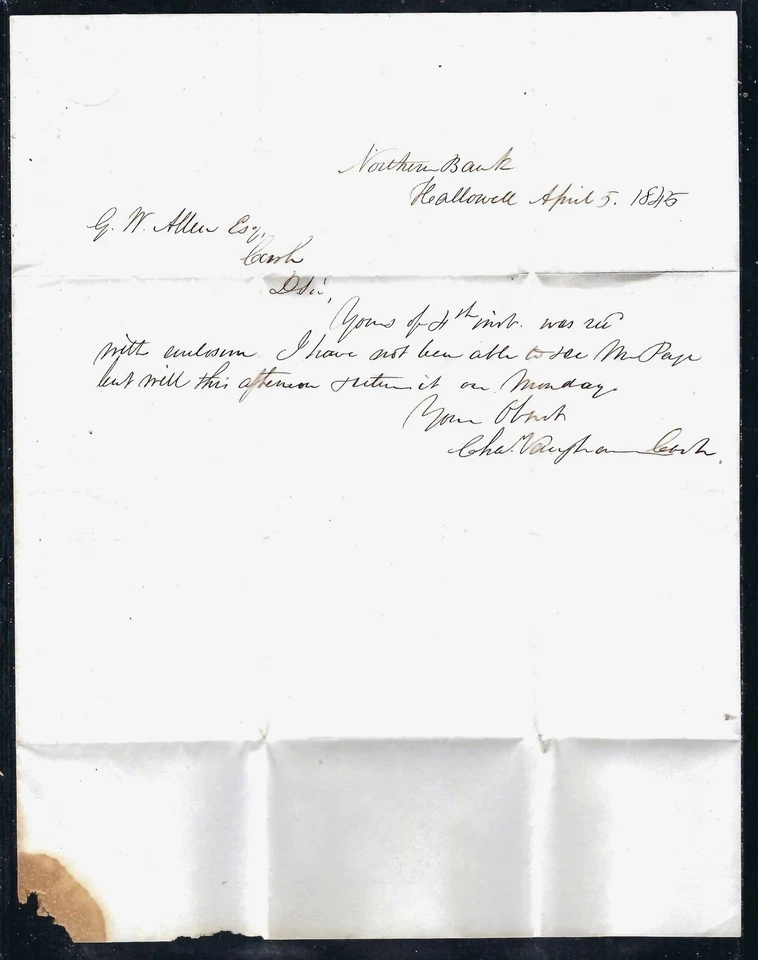 Northern Bank
Hallowell April 5. 1845
G. W. Allen Esq.
Cash
D Sir,
Yours of 4th inst. was recd
with enclosure. I have not been able to see Mr Page
but will this afternoon & return it on Monday.
Your Obent
Chas. Vaughan Cash.